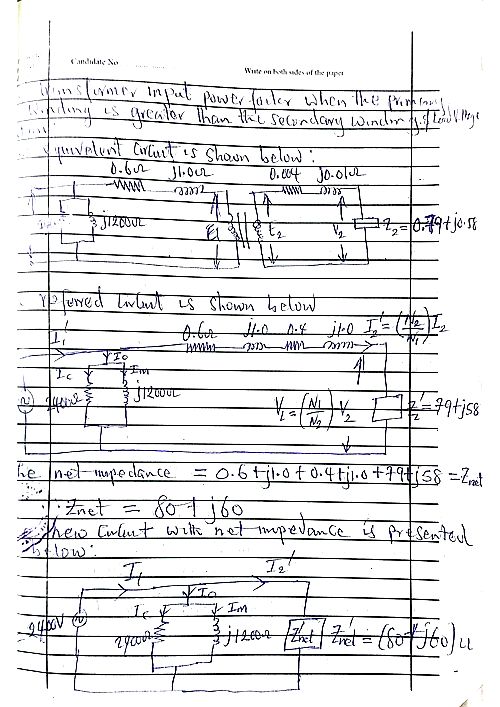 Candidate No
Write on both sides of the paper
Transformer input power factor when the Primary
winding is greater than the secondary winding
Equivalent Circuit is shown below:
0.6Ω j1.0Ω 0.004 j0.01Ω
j1200Ω E1 E2 V2 Z2 = 0.79+j0.58
referred Circuit is shown below
I1 0.6Ω j1.0 0.4 j1.0 I2' = (N2/N1) I2
I0
Ic Im
2400Ω j1200Ω V2' = (N1/N2) V2 Z2' = 79+j58
The net impedance = 0.6+j1.0+0.4+j1.0+79+j58 = Znet
∴ Znet = 80+j60
New Circuit with net impedance is presented
below:
I1 I2'
I0
2400V Ic Im
2400Ω j1200Ω Z'net Z'net = (80+j60)Ω